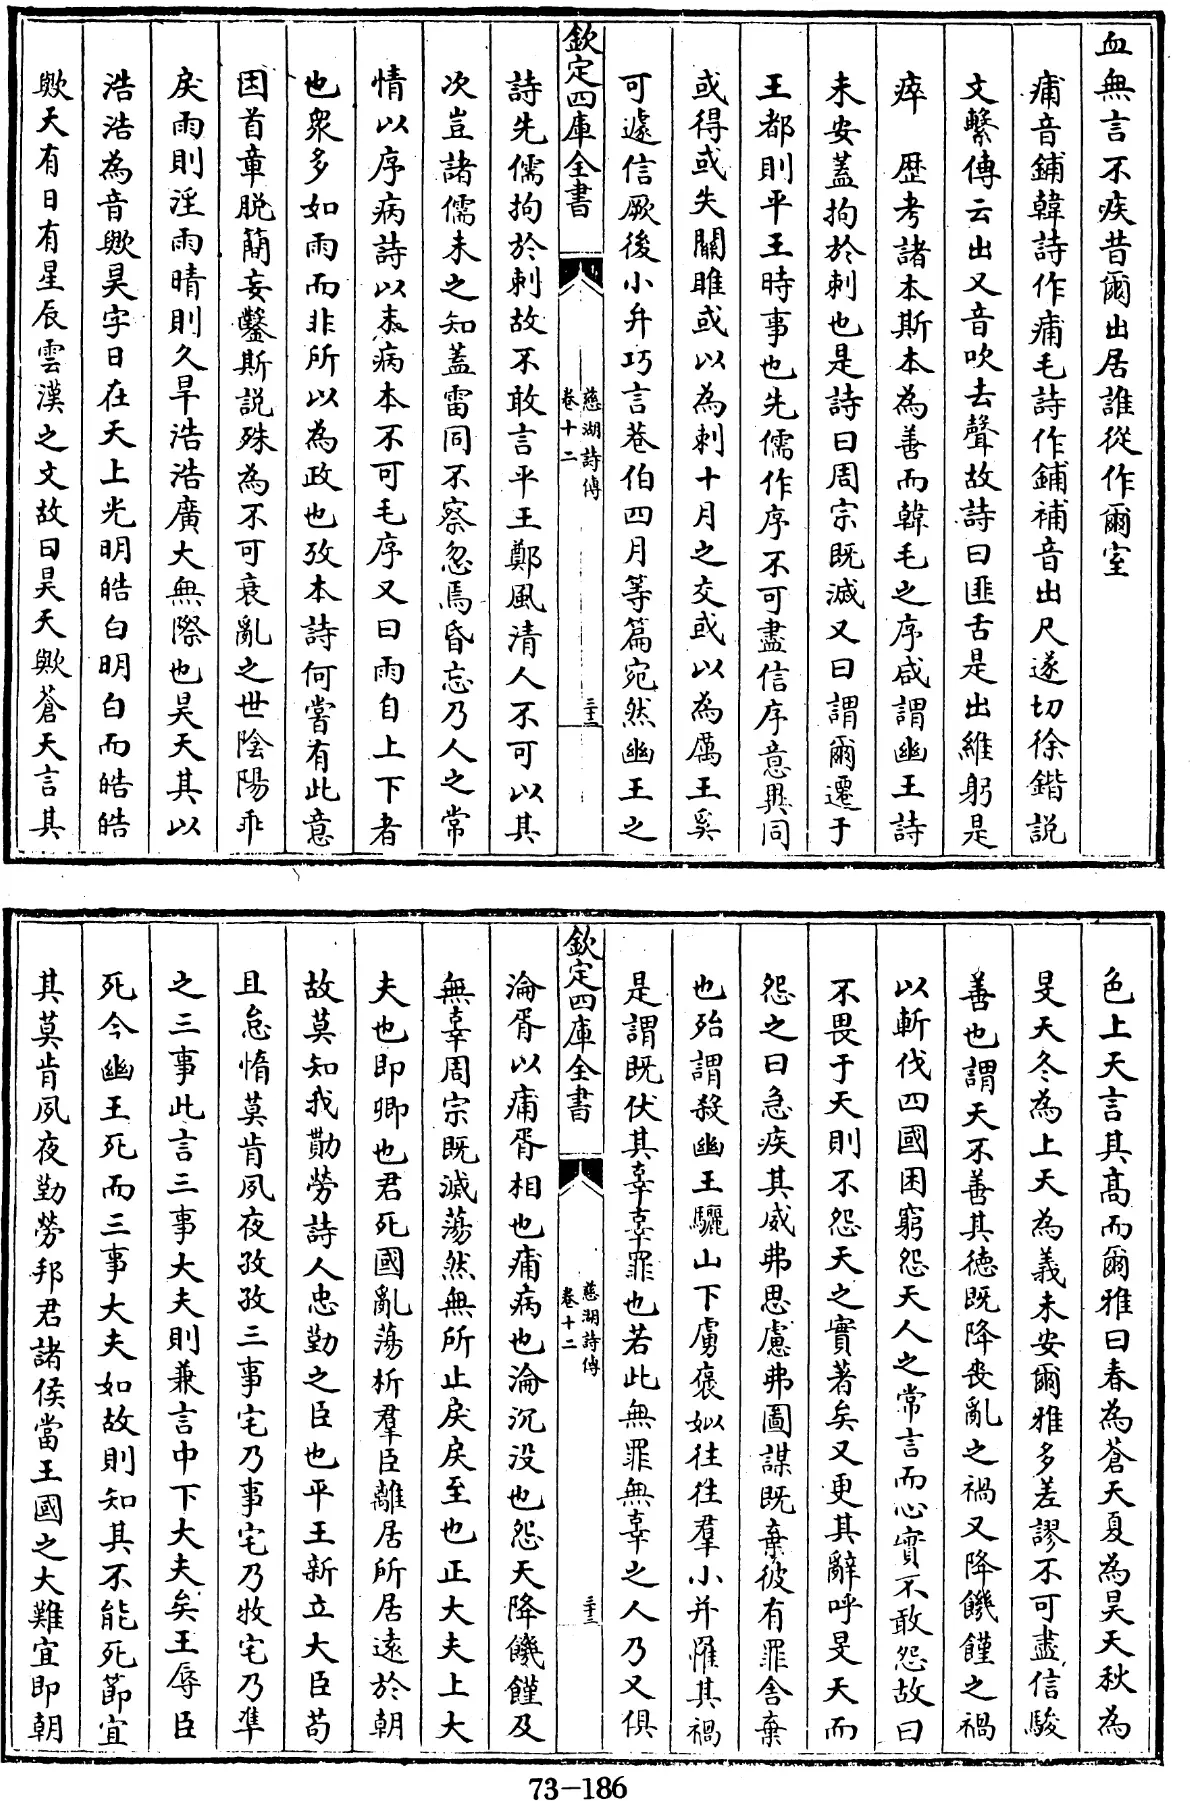 血無言不疾昔爾出居誰從作爾室
痡音鋪韓詩作痡毛詩作鋪補音出尺遂切徐鍇説
文繫傳云出又音吹去聲故詩曰匪舌是出維躬是
瘁　歴考諸本斯本為善而韓毛之序咸謂幽王詩
未安蓋拘於刺也是詩曰周宗既滅又曰謂爾遷于
王都則平王時事也先儒作序不可盡信序意異同
或得或失關雎或以為刺十月之交或以為厲王奚
可遽信厥後小弁巧言巷伯四月等篇宛然幽王之
欽定四庫全書
慈湖詩傳
卷十二
三十三
詩先儒拘於刺故不敢言平王鄭風清人不可以其
次豈諸儒未之知蓋雷同不察忽焉昏忘乃人之常
情以序病詩以病本不可毛序又曰雨自上下者
也衆多如雨而非所以為政也攷本詩何嘗有此意
因首章脱簡妄鑿斯説殊為不可衰亂之世陰陽乖
戾雨則淫雨晴則久旱浩浩廣大無際也昊天其以
浩浩為音歟昊字日在天上光明皓白明白而皓皓
歟天有日有星辰雲漢之文故曰昊天歟蒼天言其
色上天言其髙而爾雅曰春為蒼天夏為昊天秋為
旻天冬為上天為義未安爾雅多差謬不可盡信駿
善也謂天不善其徳既降喪亂之禍又降饑饉之禍
以斬伐四國困窮怨天人之常言而心實不敢怨故曰
不畏于天則不怨天之實著矣又更其辭呼旻天而
怨之曰急疾其威弗思慮弗圖謀既棄彼有罪舍棄
也殆謂殺幽王驪山下虜褒姒往往羣小并罹其禍
是謂既伏其辜辜罪也若此無罪無辜之人乃又俱
欽定四庫全書
慈湖詩傳
卷十二
三十三
淪胥以痡胥相也痡病也淪沉没也怨天降饑饉及
無辜周宗既滅蕩然無所止戾戾至也正大夫上大
夫也即卿也君死國亂蕩析羣臣離居所居遠於朝
故莫知我勩勞詩人忠勤之臣也平王新立大臣苟
且怠惰莫肯夙夜孜孜三事宅乃事宅乃牧宅乃準
之三事此言三事大夫則兼言中下大夫矣王辱臣
死今幽王死而三事大夫如故則知其不能死節宜
其莫肯夙夜勤勞邦君諸侯當王國之大難宜即朝
73-186